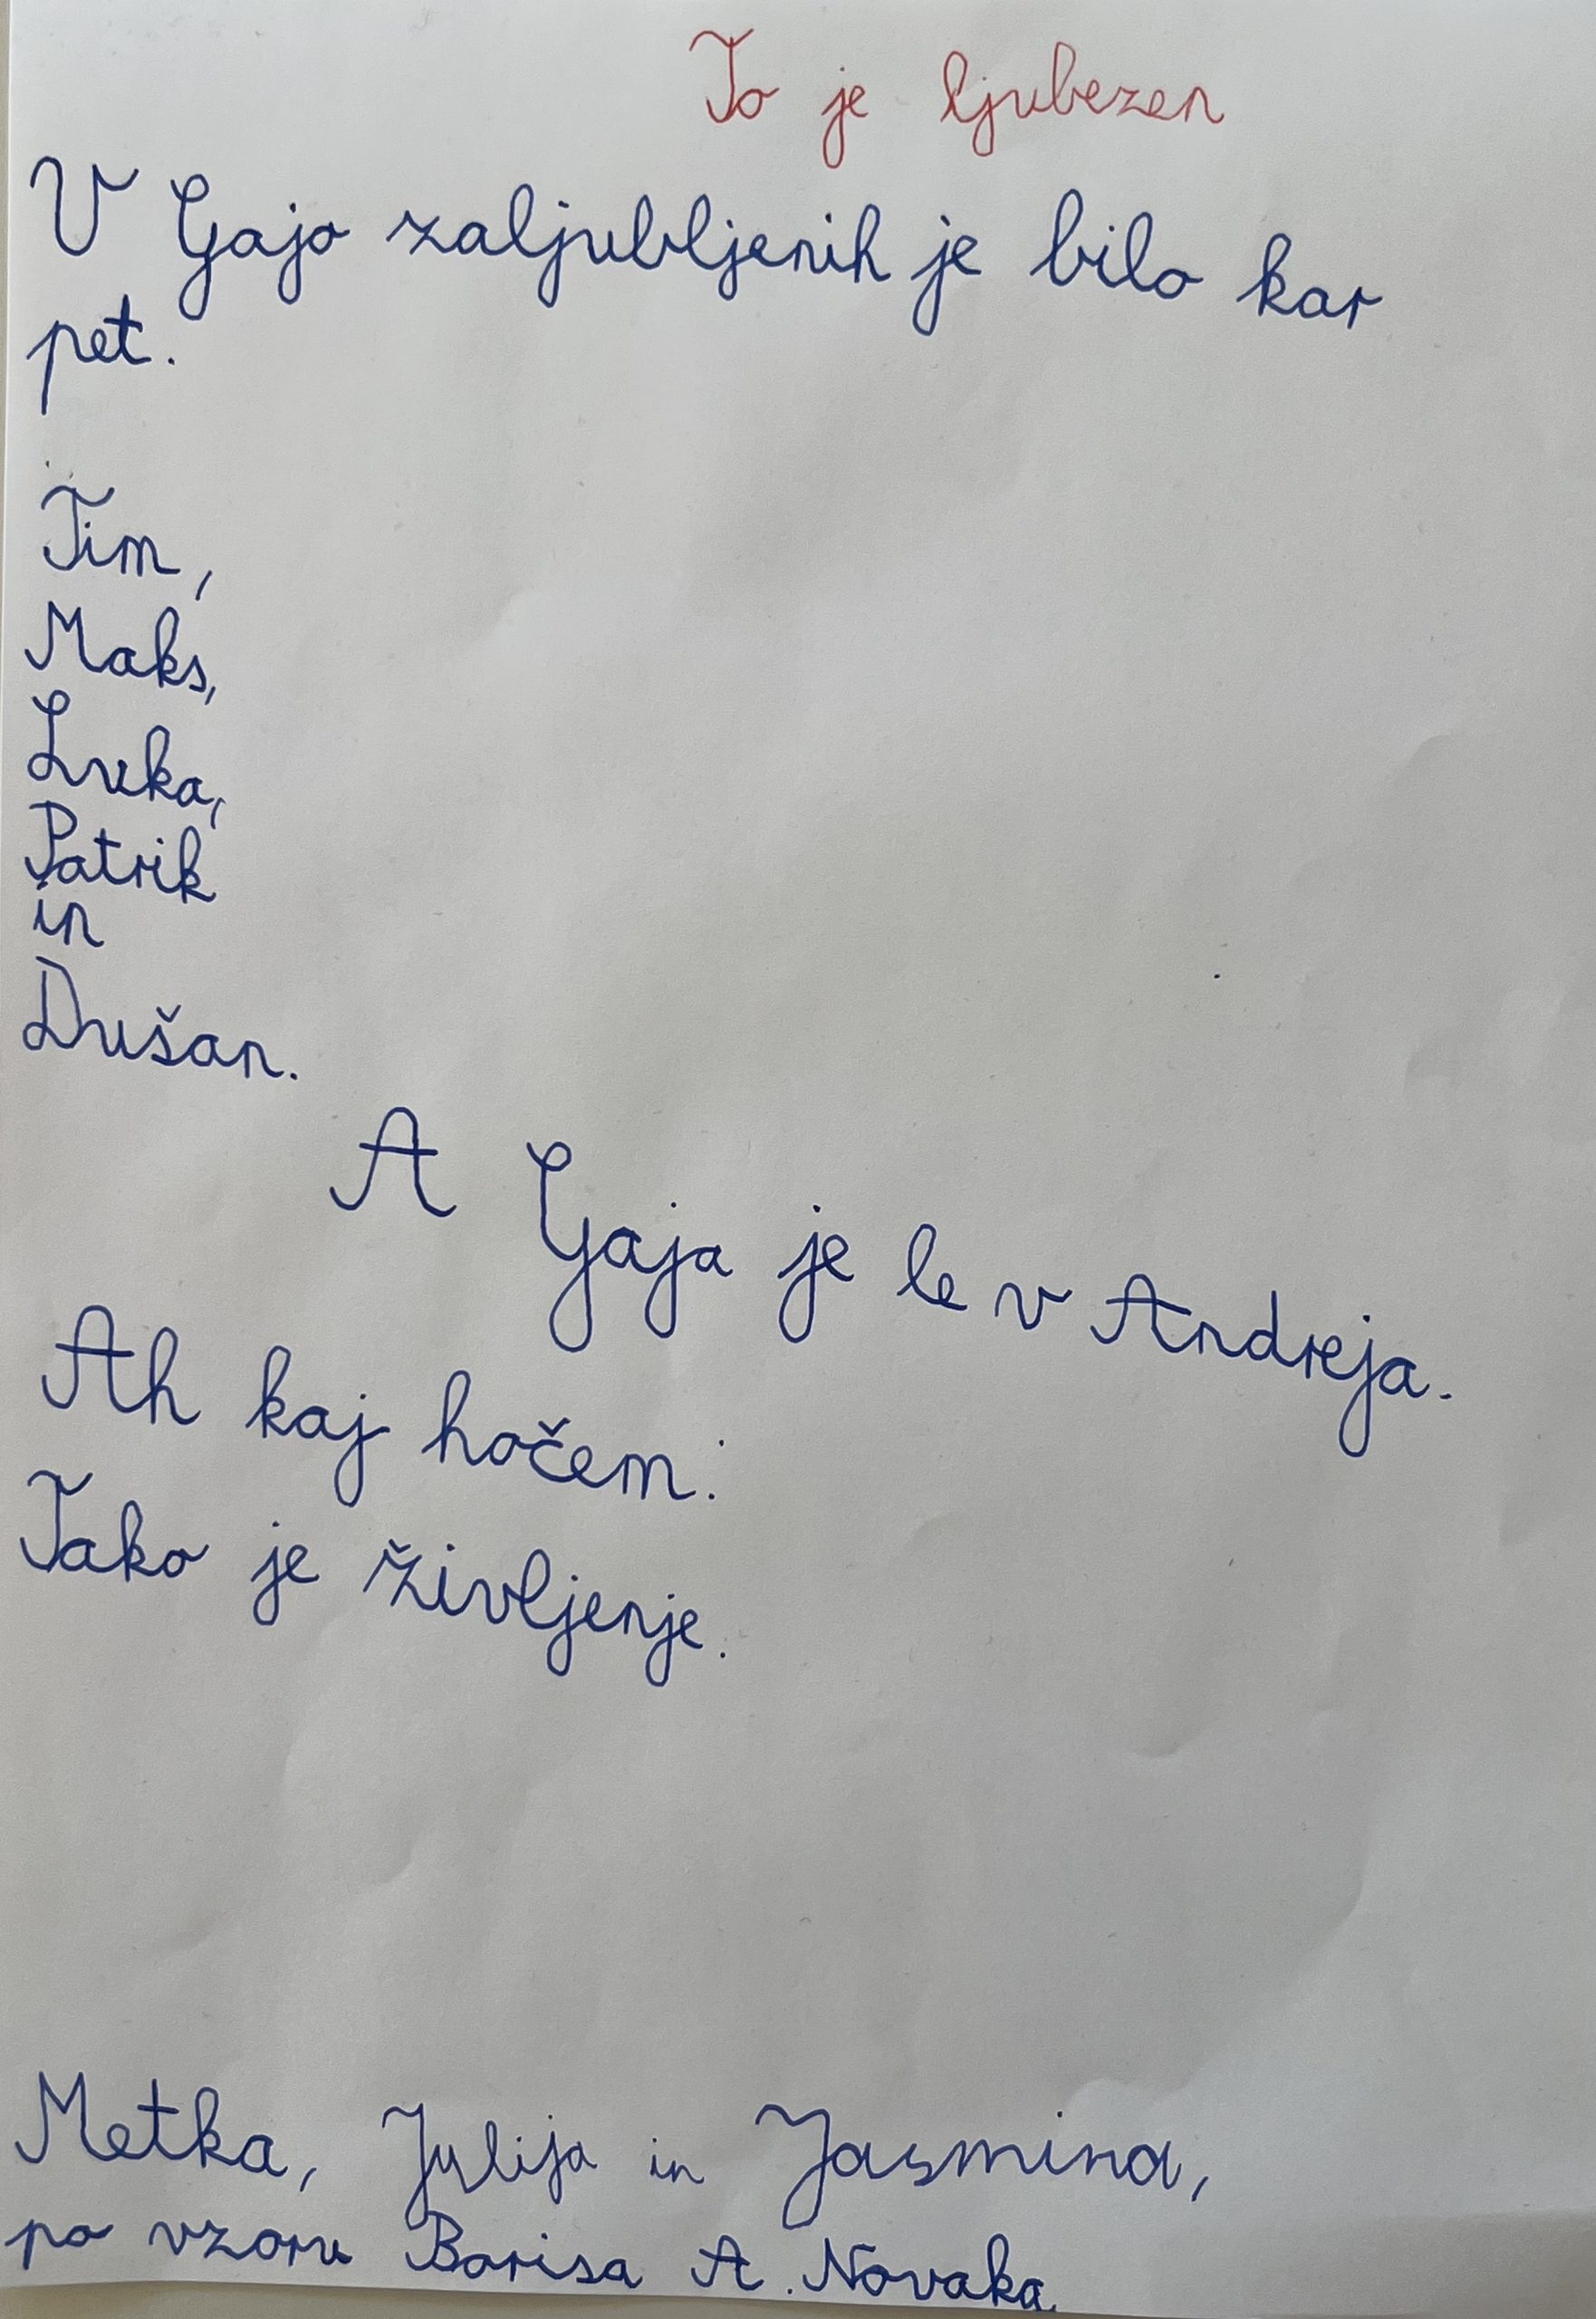 To je ljubezen
V Gajo zaljubljenih je bilo kar
pet.
Tim,
Maks,
Luka,
Patrik
in
Dušan.
A Gaja je le v Andreja.
Ah kaj hočem.
Tako je življenje.
Metka, Julija in Jasmina,
po vzoru Borisa A. Novaka